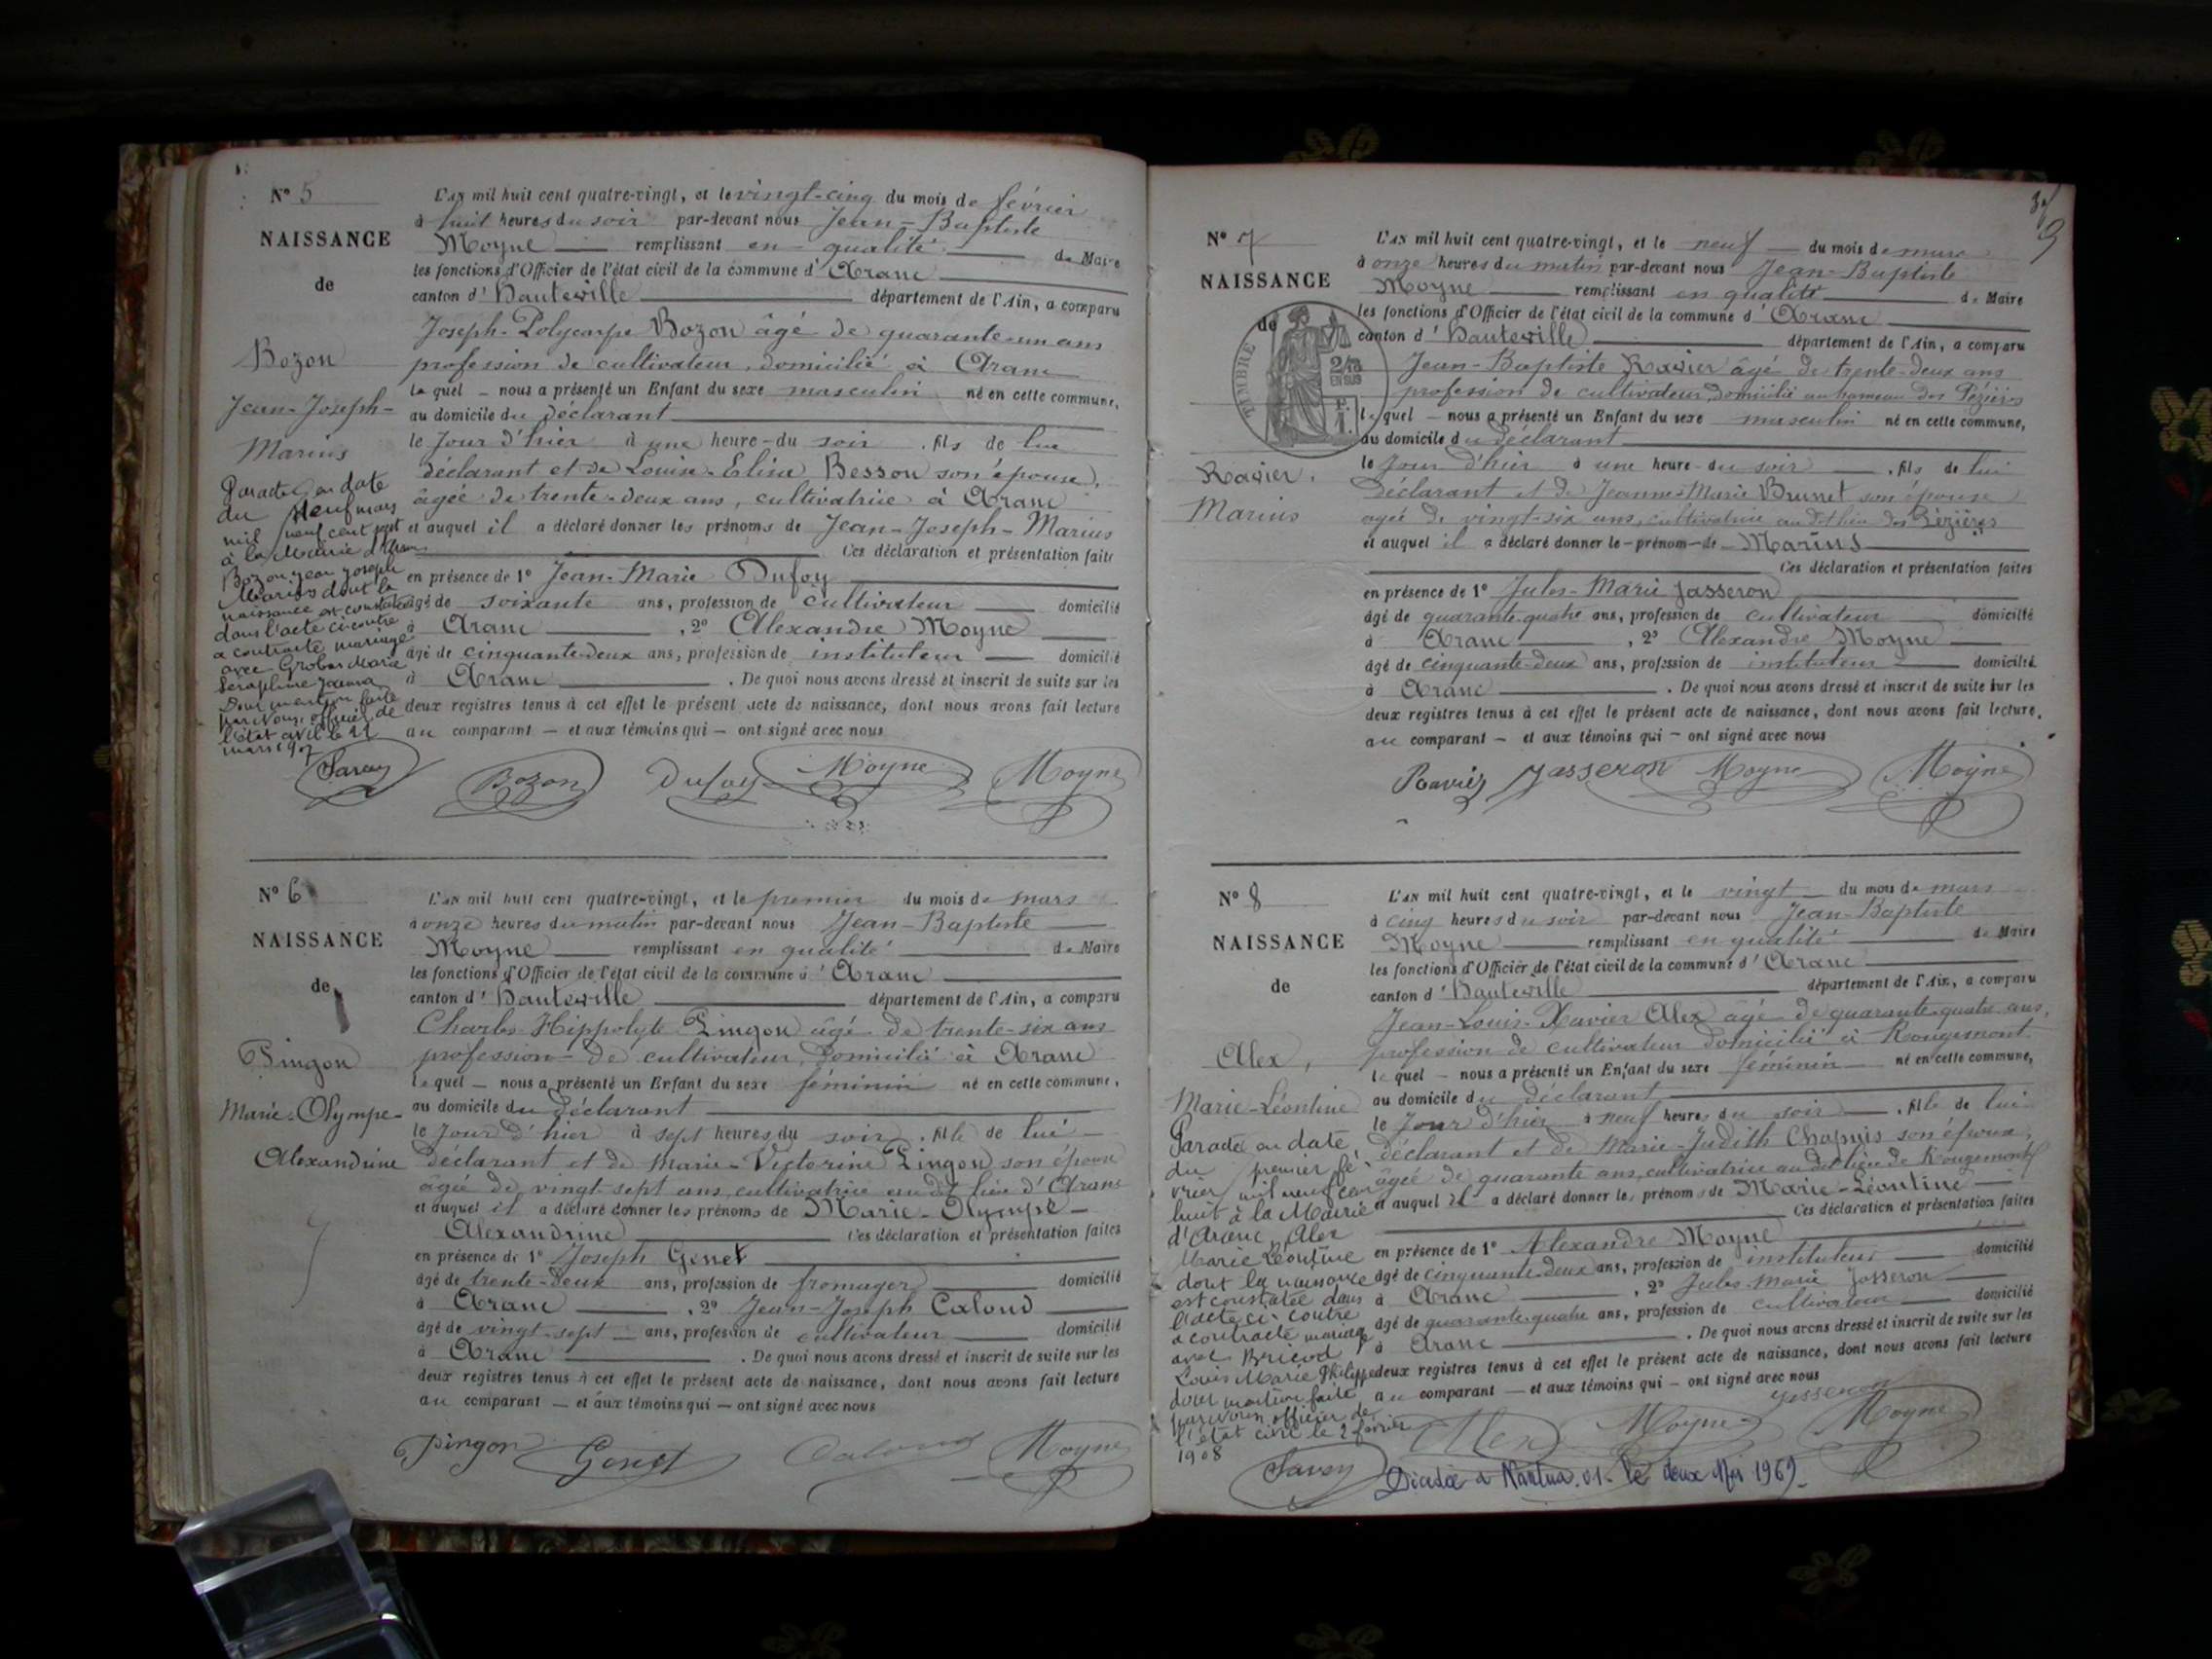 N° 5
NAISSANCE
de
Bozon
Jean-Joseph-
Marius
Par acte en date
du neuf mars
mil neuf cent sept
à la Mairie d'Aranc
Bozon Jean Joseph
Marius dont la
naissance est constatée
dans l'acte ci-contre
a contracté mariage
avec Grobas Marie
Séraphine Joanna
Dont mention faite
par Nous, officier de
l'Etat civil le 11
mars 1907
L'AN mil huit cent quatre-vingt, et le vingt-cinq du mois de février
à huit heures du soir par-devant nous Jean-Baptiste
Moyne remplissant en qualité de Maire
les fonctions d'Officier de l'état civil de la commune d'Aranc
canton d'Hauteville département de l'Ain, a comparu
Joseph-Polycarpe Bozon âgé de quarante-un ans
profession de cultivateur, domicilié à Aranc
lequel nous a présenté un Enfant du sexe masculin né en cette commune,
au domicile du déclarant
le jour d'hier à une heure du soir, fils de lui
déclarant et de Louise-Elisa Besson son épouse,
âgée de trente-deux ans, cultivatrice à Aranc
et auquel il a déclaré donner les prénoms de Jean-Joseph-Marius
Ces déclaration et présentation faites
en présence de 1° Jean-Marie Dufoy
âgé de soixante ans, profession de cultivateur domicilié
à Aranc, 2° Alexandre Moyne
âgé de cinquante-deux ans, profession de instituteur domicilié
à Aranc. De quoi nous avons dressé et inscrit de suite sur les
deux registres tenus à cet effet le présent acte de naissance, dont nous avons fait lecture
au comparant — et aux témoins qui — ont signé avec nous
Savey Bozon Dufoy Moyne Moyne
N° 6
NAISSANCE
de
Pingon
Marie-Olympe-
Alexandrine
L'AN mil huit cent quatre-vingt, et le premier du mois de mars
à onze heures du matin par-devant nous Jean-Baptiste
Moyne remplissant en qualité de Maire
les fonctions d'Officier de l'état civil de la commune d'Aranc
canton d'Hauteville département de l'Ain, a comparu
Charles-Hippolyte Pingon âgé de trente-six ans
profession de cultivateur, domicilié à Aranc
lequel — nous a présenté un Enfant du sexe féminin né en cette commune,
au domicile du déclarant
le jour d'hier à sept heures du soir, fille de lui
déclarant et de Marie-Victorine Pingon son épouse
âgée de vingt-sept ans, cultivatrice au dit lieu d'Aranc
et auquel il a déclaré donner les prénoms de Marie-Olympe-
Alexandrine Ces déclaration et présentation faites
en présence de 1° Joseph Genet
âgé de trente-deux ans, profession de fromager domicilié
à Aranc, 2° Jean-Joseph Caloud
âgé de vingt-sept ans, profession de cultivateur domicilié
à Aranc. De quoi nous avons dressé et inscrit de suite sur les
deux registres tenus à cet effet le présent acte de naissance, dont nous avons fait lecture
au comparant — et aux témoins qui — ont signé avec nous
Pingon Genet Caloud Moyne
9
N° 7
NAISSANCE
de
TIMBRE
EN SUS
Ravier,
Marius
L'AN mil huit cent quatre-vingt, et le neuf du mois de mars
à onze heures du matin par-devant nous Jean-Baptiste
Moyne remplissant en qualité de Maire
les fonctions d'Officier de l'état civil de la commune d'Aranc
canton d'Hauteville département de l'Ain, a comparu
Jean-Baptiste Ravier âgé de trente-deux ans
profession de cultivateur, domicilié au hameau des Pézières
lequel — nous a présenté un Enfant du sexe masculin né en cette commune,
au domicile du déclarant
le jour d'hier à une heure du soir, fils de lui
déclarant et de Jeanne-Marie Brunet son épouse
âgée de vingt-six ans, cultivatrice au dit lieu des Pézières
et auquel il a déclaré donner le prénom de Marius
Ces déclaration et présentation faites
en présence de 1° Jules-Marie Jasseron
âgé de quarante-quatre ans, profession de cultivateur domicilié
à Aranc, 2° Alexandre Moyne
âgé de cinquante-deux ans, profession de instituteur domicilié
à Aranc. De quoi nous avons dressé et inscrit de suite sur les
deux registres tenus à cet effet le présent acte de naissance, dont nous avons fait lecture,
au comparant — et aux témoins qui — ont signé avec nous
Ravier Jasseron Moyne Moyne
N° 8
NAISSANCE
de
Alex,
Marie-Léontine
Par acte en date
du premier fé-
vrier mil neuf cent
huit à la Mairie
d'Aranc, Alex
Marie Léontine
dont la naissance
est constatée dans
l'acte ci-contre
a contracté mariage
avec Bricod
Louis Marie Philippe
dont mention faite
par Nous, officier de
l'état civil le 2 février
1908
L'AN mil huit cent quatre-vingt, et le vingt du mois de mars
à cinq heures du soir par-devant nous Jean-Baptiste
Moyne remplissant en qualité de Maire
les fonctions d'Officier de l'état civil de la commune d'Aranc
canton d'Hauteville département de l'Ain, a comparu
Jean-Louis-Xavier Alex âgé de quarante-quatre ans,
profession de cultivateur domicilié à Rougemont
lequel — nous a présenté un Enfant du sexe féminin né en cette commune,
au domicile du déclarant
le jour d'hier à neuf heures du soir, fille de lui
déclarant et de Marie-Judith Chapuis son épouse,
âgée de quarante ans, cultivatrice au dit lieu de Rougemont
et auquel il a déclaré donner les prénoms de Marie-Léontine
Ces déclaration et présentation faites
en présence de 1° Alexandre Moyne
âgé de cinquante-deux ans, profession de instituteur domicilié
à Aranc, 2° Jules-Marie Jasseron
âgé de quarante-quatre ans, profession de cultivateur domicilié
à Aranc. De quoi nous avons dressé et inscrit de suite sur les
deux registres tenus à cet effet le présent acte de naissance, dont nous avons fait lecture
au comparant — et aux témoins qui — ont signé avec nous
Jasseron
Savey Alex Moyne Moyne
Décédée à Nantua. 01. le deux Mai 1969.